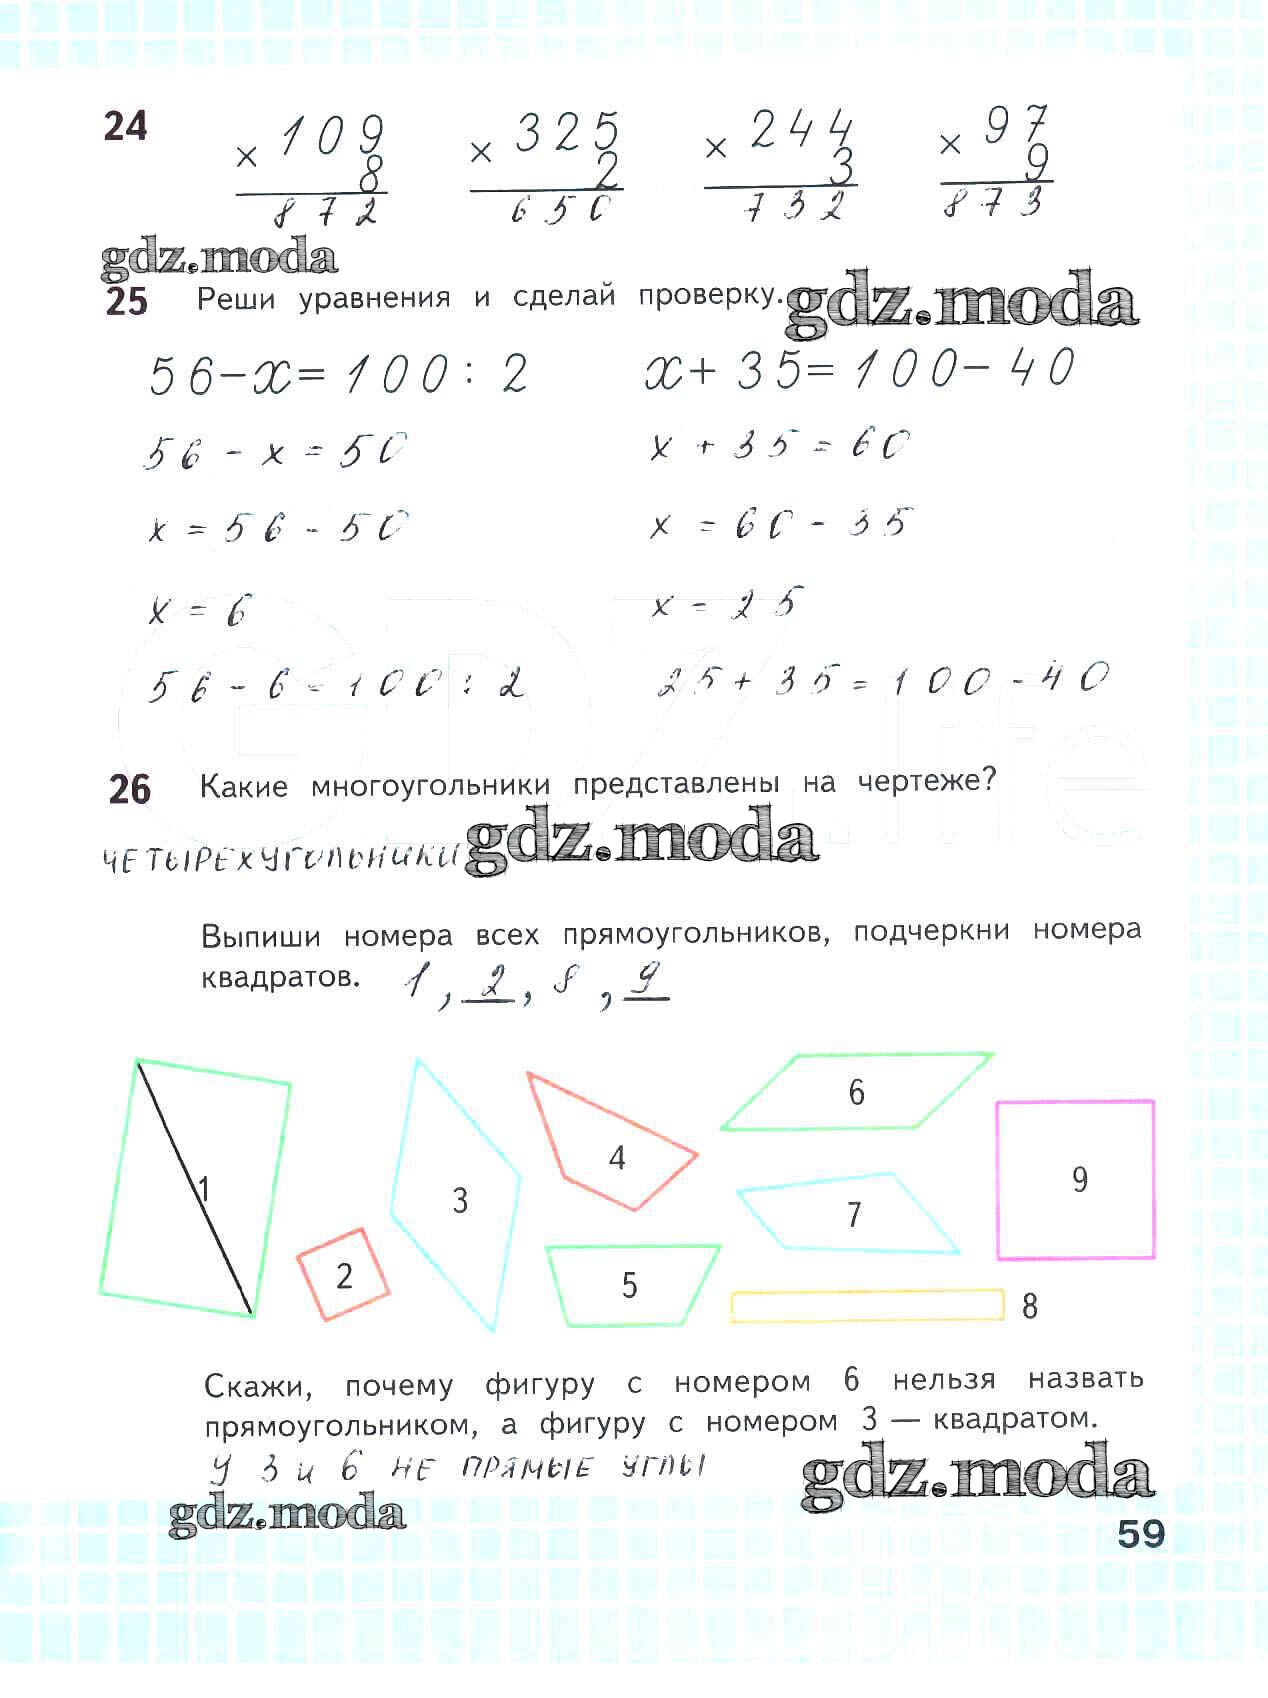 24
× 109 × 325 × 244 × 97
8 2 3 9
872 650 732 873
gdz.moda
25 Реши уравнения и сделай проверку. gdz.moda
56 - x = 100 : 2 x + 35 = 100 - 40
56 - x = 50 x + 35 = 60
x = 56 - 50 x = 60 - 35
x = 6 x = 25
56 - 6 = 100 : 2 25 + 35 = 100 - 40
GDZ.life
26 Какие многоугольники представлены на чертеже?
ЧЕТЫРЕХУГОЛЬНИКИ gdz.moda
Выпиши номера всех прямоугольников, подчеркни номера
квадратов. 1, 2, 8, 9
6
4
9
1
3
7
2
5
8
Скажи, почему фигуру с номером 6 нельзя назвать
прямоугольником, а фигуру с номером 3 — квадратом.
У 3 и 6 НЕ ПРЯМЫЕ УГЛЫ
gdz.moda
gdz.moda
59